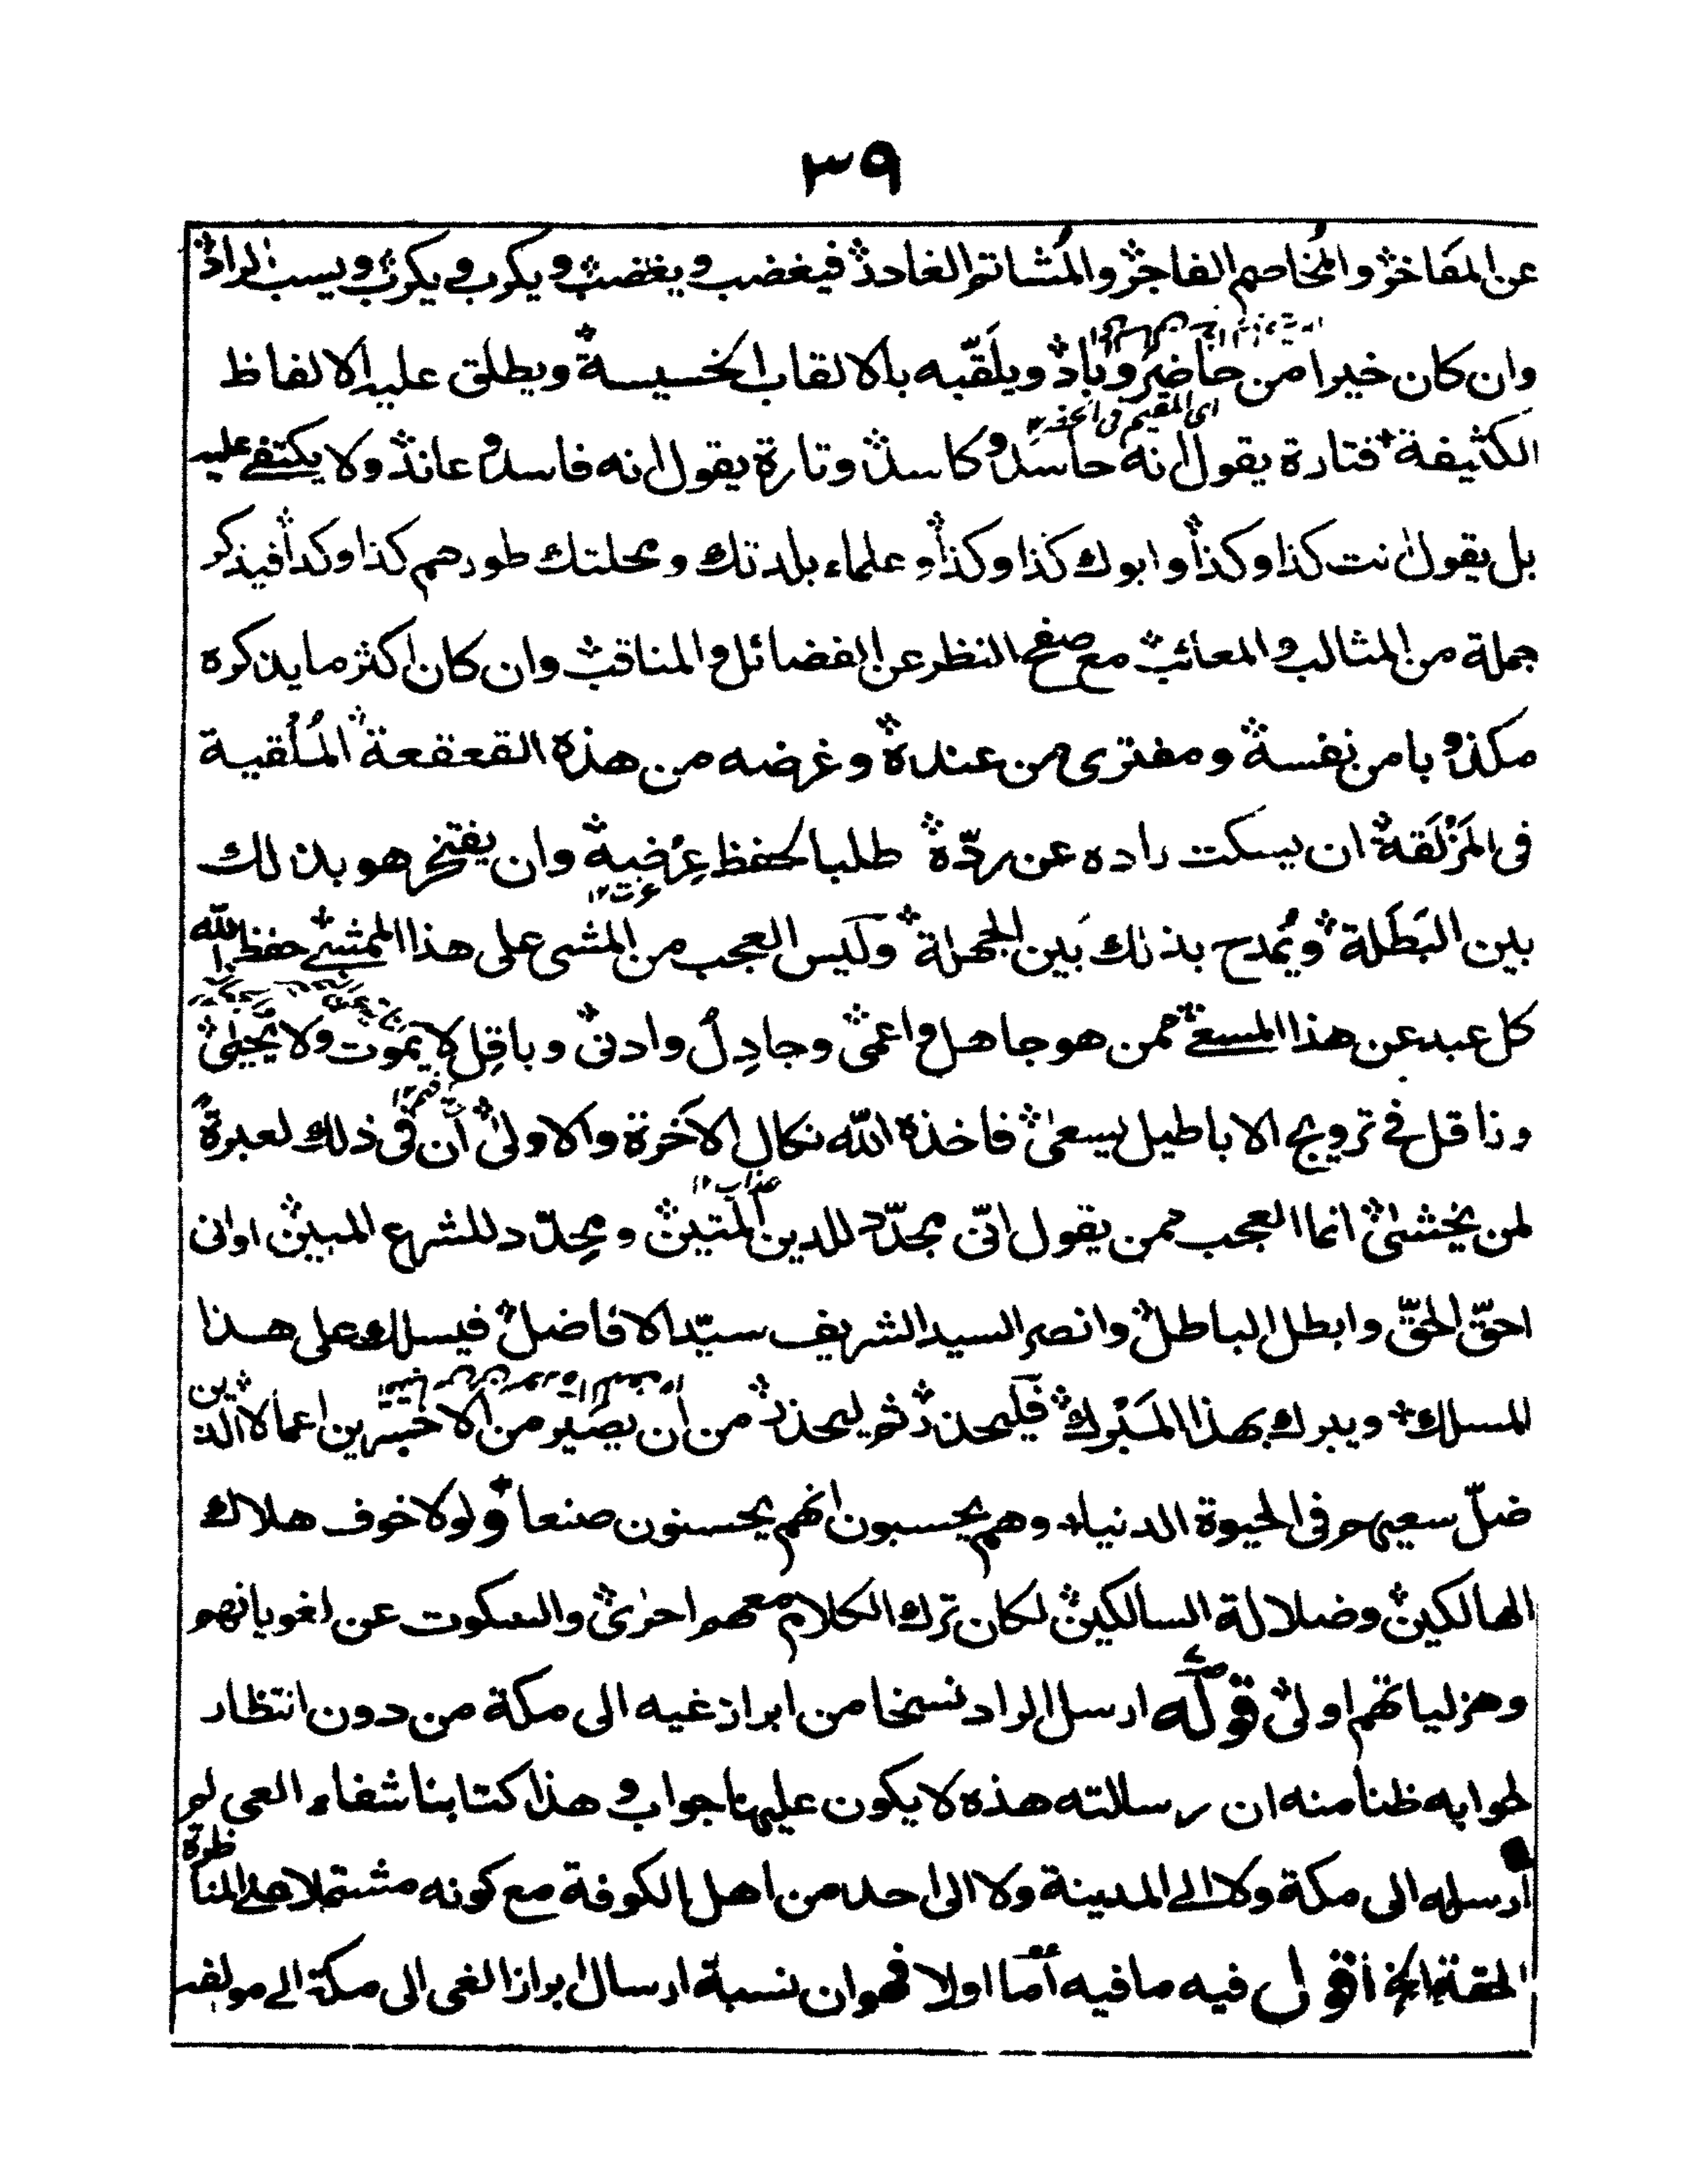 ٣٩
عن المفاخر والمخاصم الفاجر والمُشاتم الغادر فيغضب ويغضب ويكرب ويكرب ويسب الراد
وان كان خيرا من حاضر وباد ويلَقّبه بالالقاب الخسيسة ويطلق عليه الالفاظ
اى المقيم فى الحضر
الكثيفة فتارة يقول انه حاسد وكاسد وتارة يقول انه فاسد وعاند ولا يكتفے عليه
بل يقول انت كذا وكذا وابوك كذا وكذا وعلماء بلدتك ومحلتك طورهم كذا وكذا فيذكر
جملة من المثالب والمعائب مع صفح النظر عن الفضائل والمناقب وان كان اكثر ما يذكره
مكذوبا من نفسه ومفترى من عنده وغرضه من هذه القعقعة المُلْقية
فى المَزْلَقة ان يسكت راده عن ردّه طلبا لحفظ عِرْضيه وان يفتخر هو بذلك
عزت ١٢
بين البَطَلة ويُمدح بذلك بَين الجهلة وليس العجب من المشى على هذا الممشےٰ حفظ الله
كل عبد عن هذا المسعےٰ ممن هو جاهل واعمى وجادِلٌ وادنى وباقِل لا يموت ولا يحيىٰ
وناقل فے ترويج الاباطيل يسعىٰ فاخذه الله نكال الاٰخرة والاولىٰ ان فى ذلك لعبرة
عذاب ١٢
لمن يخشىٰ انما العجب ممن يقول انّى مجدّد للدين المتين ومجدّد للشرع المبين اوانى
احقّ الحقّ وابطل الباطل وانصر السيد الشريف سيّد الافاضل فيسلك على هذا
المسلك ويبرك بهذا المَبْرك فليحذر ثم ليحذر من ان يصير من الاخسرين اعمالا الذين
ضلّ سعيهم فى الحيوة الدنيا وهم يحسبون انهم يحسنون صنعا ولولا خوف هلاك
الهالكين وضلالة السالكين لكان ترك الكلام معهم احرىٰ والسكوت عن لغوياتهم
وهزلياتهم اولىٰ قوله ارسل الراد نسخا من ابراز غيه الى مكة من دون انتظار
لجوابه ظنا منه ان رسالته هذه لا يكون عليها جواب وهذا كتابنا شفاء العى لم
ارسله الى مكة ولا الے المدينة ولا الى احد من اهل الكوفة مع كونه مشتملا علے المناظرة
الحقة الخ اقول فيه ما فيه أما اولا فهو ان نسبة ارسال ابراز الغى الى مكة الے مولفه